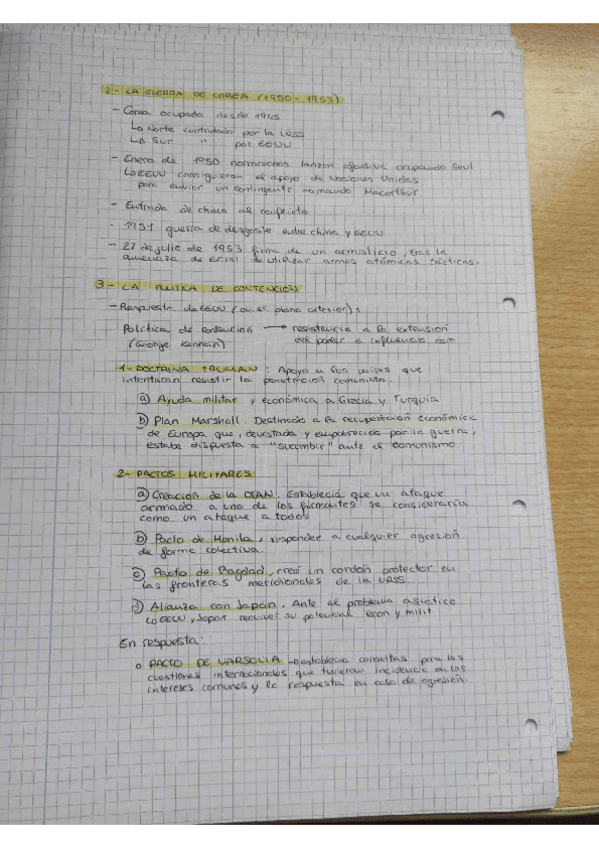 2- LA GUERRA DE COREA (1950 - 1953)
- Corea ocupada desde 1945
↳ Norte controlado por la URSS
↳ Sur " por EEUU
- Enero de 1950 norcoreanos lanzan ofensiva ocupando Seul
↳ EEUU consiguieron el apoyo de Naciones Unidas
para enviar un contingente → mando Macarthur
- Entrada de china al conflicto
- 1951 guerra de desgaste entre china y EEUU
- 27 de julio de 1953 firma de un armisticio, tras la
amenaza de EEUU de utilizar armas atómicas tácticas.
3- LA POLITICA DE CONTENCIÓN
- Respuesta de EEUU (en el plano exterior):
Política de contención → resistencia a la extensión
(George Kennan) del poder e influencia com
1- DOCTRINA TRUMAN: Apoyo a los países que
intentaran resistir la penetración comunista.
a) Ayuda militar y económica a Grecia y Turquia
b) Plan Marshall. Destinado a la recuperación económica
de Europa que, devastada y empobrecida por la guerra,
estaba dispuesta a "sucumbir" ante el comunismo.
2- PACTOS MILITARES
a) Creación de la OTAN. Establecía que un ataque
armado a uno de los firmantes se consideraría
como un ataque a todos
b) Pacto de Manila, responder a cualquier agresión
de forma colectiva.
c) Pacto de Bagdad, creó un cordón protector en
las fronteras meridionales de la URSS.
d) Alianza con Japón. Ante el problema asiático
↳ EEUU, Japon su potencial econ y milit
En respuesta:
o PACTO DE VARSOVIA → establecía consultas para las
cuestiones internacionales que tuvieran incidencia en los
intereses comunes y la respuesta en caso de agresión.